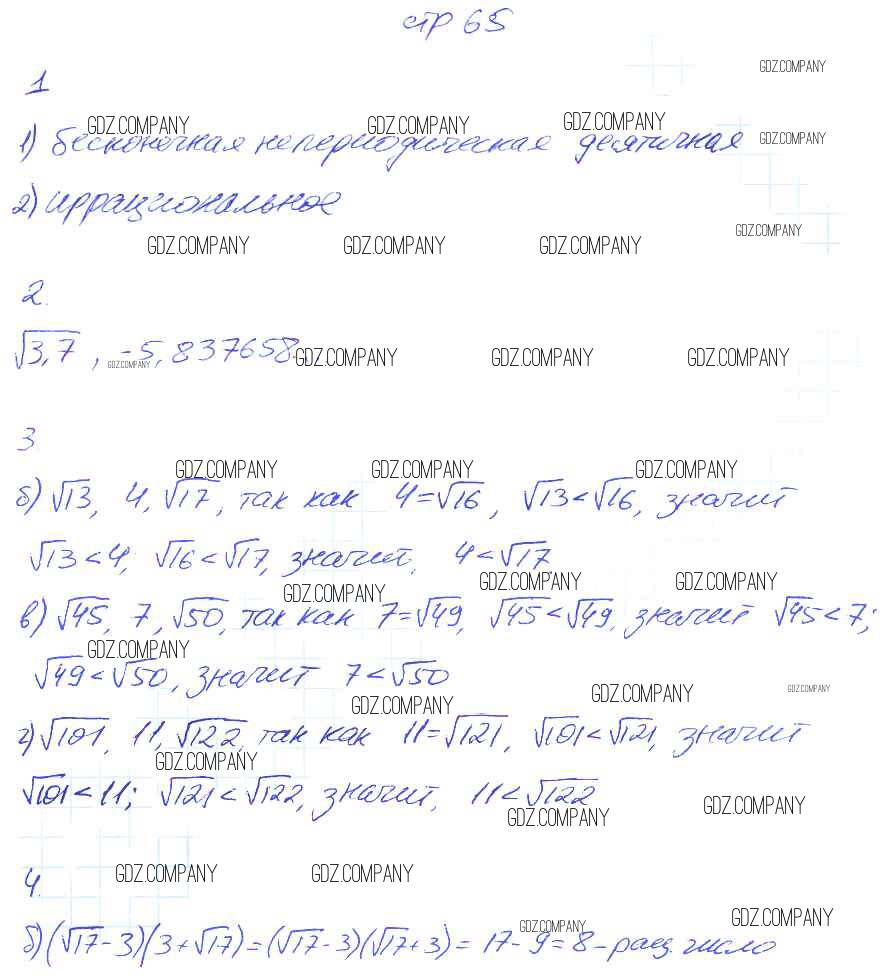 стр 65
GDZ.COMPANY
1
GDZ.COMPANY GDZ.COMPANY GDZ.COMPANY GDZ.COMPANY
1) бесконечная непериодическая десятичная
2) иррациональное
GDZ.COMPANY GDZ.COMPANY GDZ.COMPANY GDZ.COMPANY
2.
√3,7 , -5,837658... GDZ.COMPANY GDZ.COMPANY GDZ.COMPANY
GDZ.COMPANY
3
GDZ.COMPANY GDZ.COMPANY GDZ.COMPANY
б) √13, 4, √17, так как 4=√16, √13<√16, значит
√13<4, √16<√17, значит, 4<√17
GDZ.COMPANY GDZ.COMPANY GDZ.COMPANY
в) √45, 7, √50, так как 7=√49, √45<√49, значит √45<7;
GDZ.COMPANY
√49<√50, значит 7<√50
GDZ.COMPANY GDZ.COMPANY GDZ.COMPANY
г) √101, 11, √122, так как 11=√121, √101<√121, значит
GDZ.COMPANY
√101<11; √121<√122, значит, 11<√122
GDZ.COMPANY GDZ.COMPANY
4.
GDZ.COMPANY GDZ.COMPANY
GDZ.COMPANY GDZ.COMPANY
б) (√17-3)(3+√17)=(√17-3)(√17+3)=17-9=8-рац. число